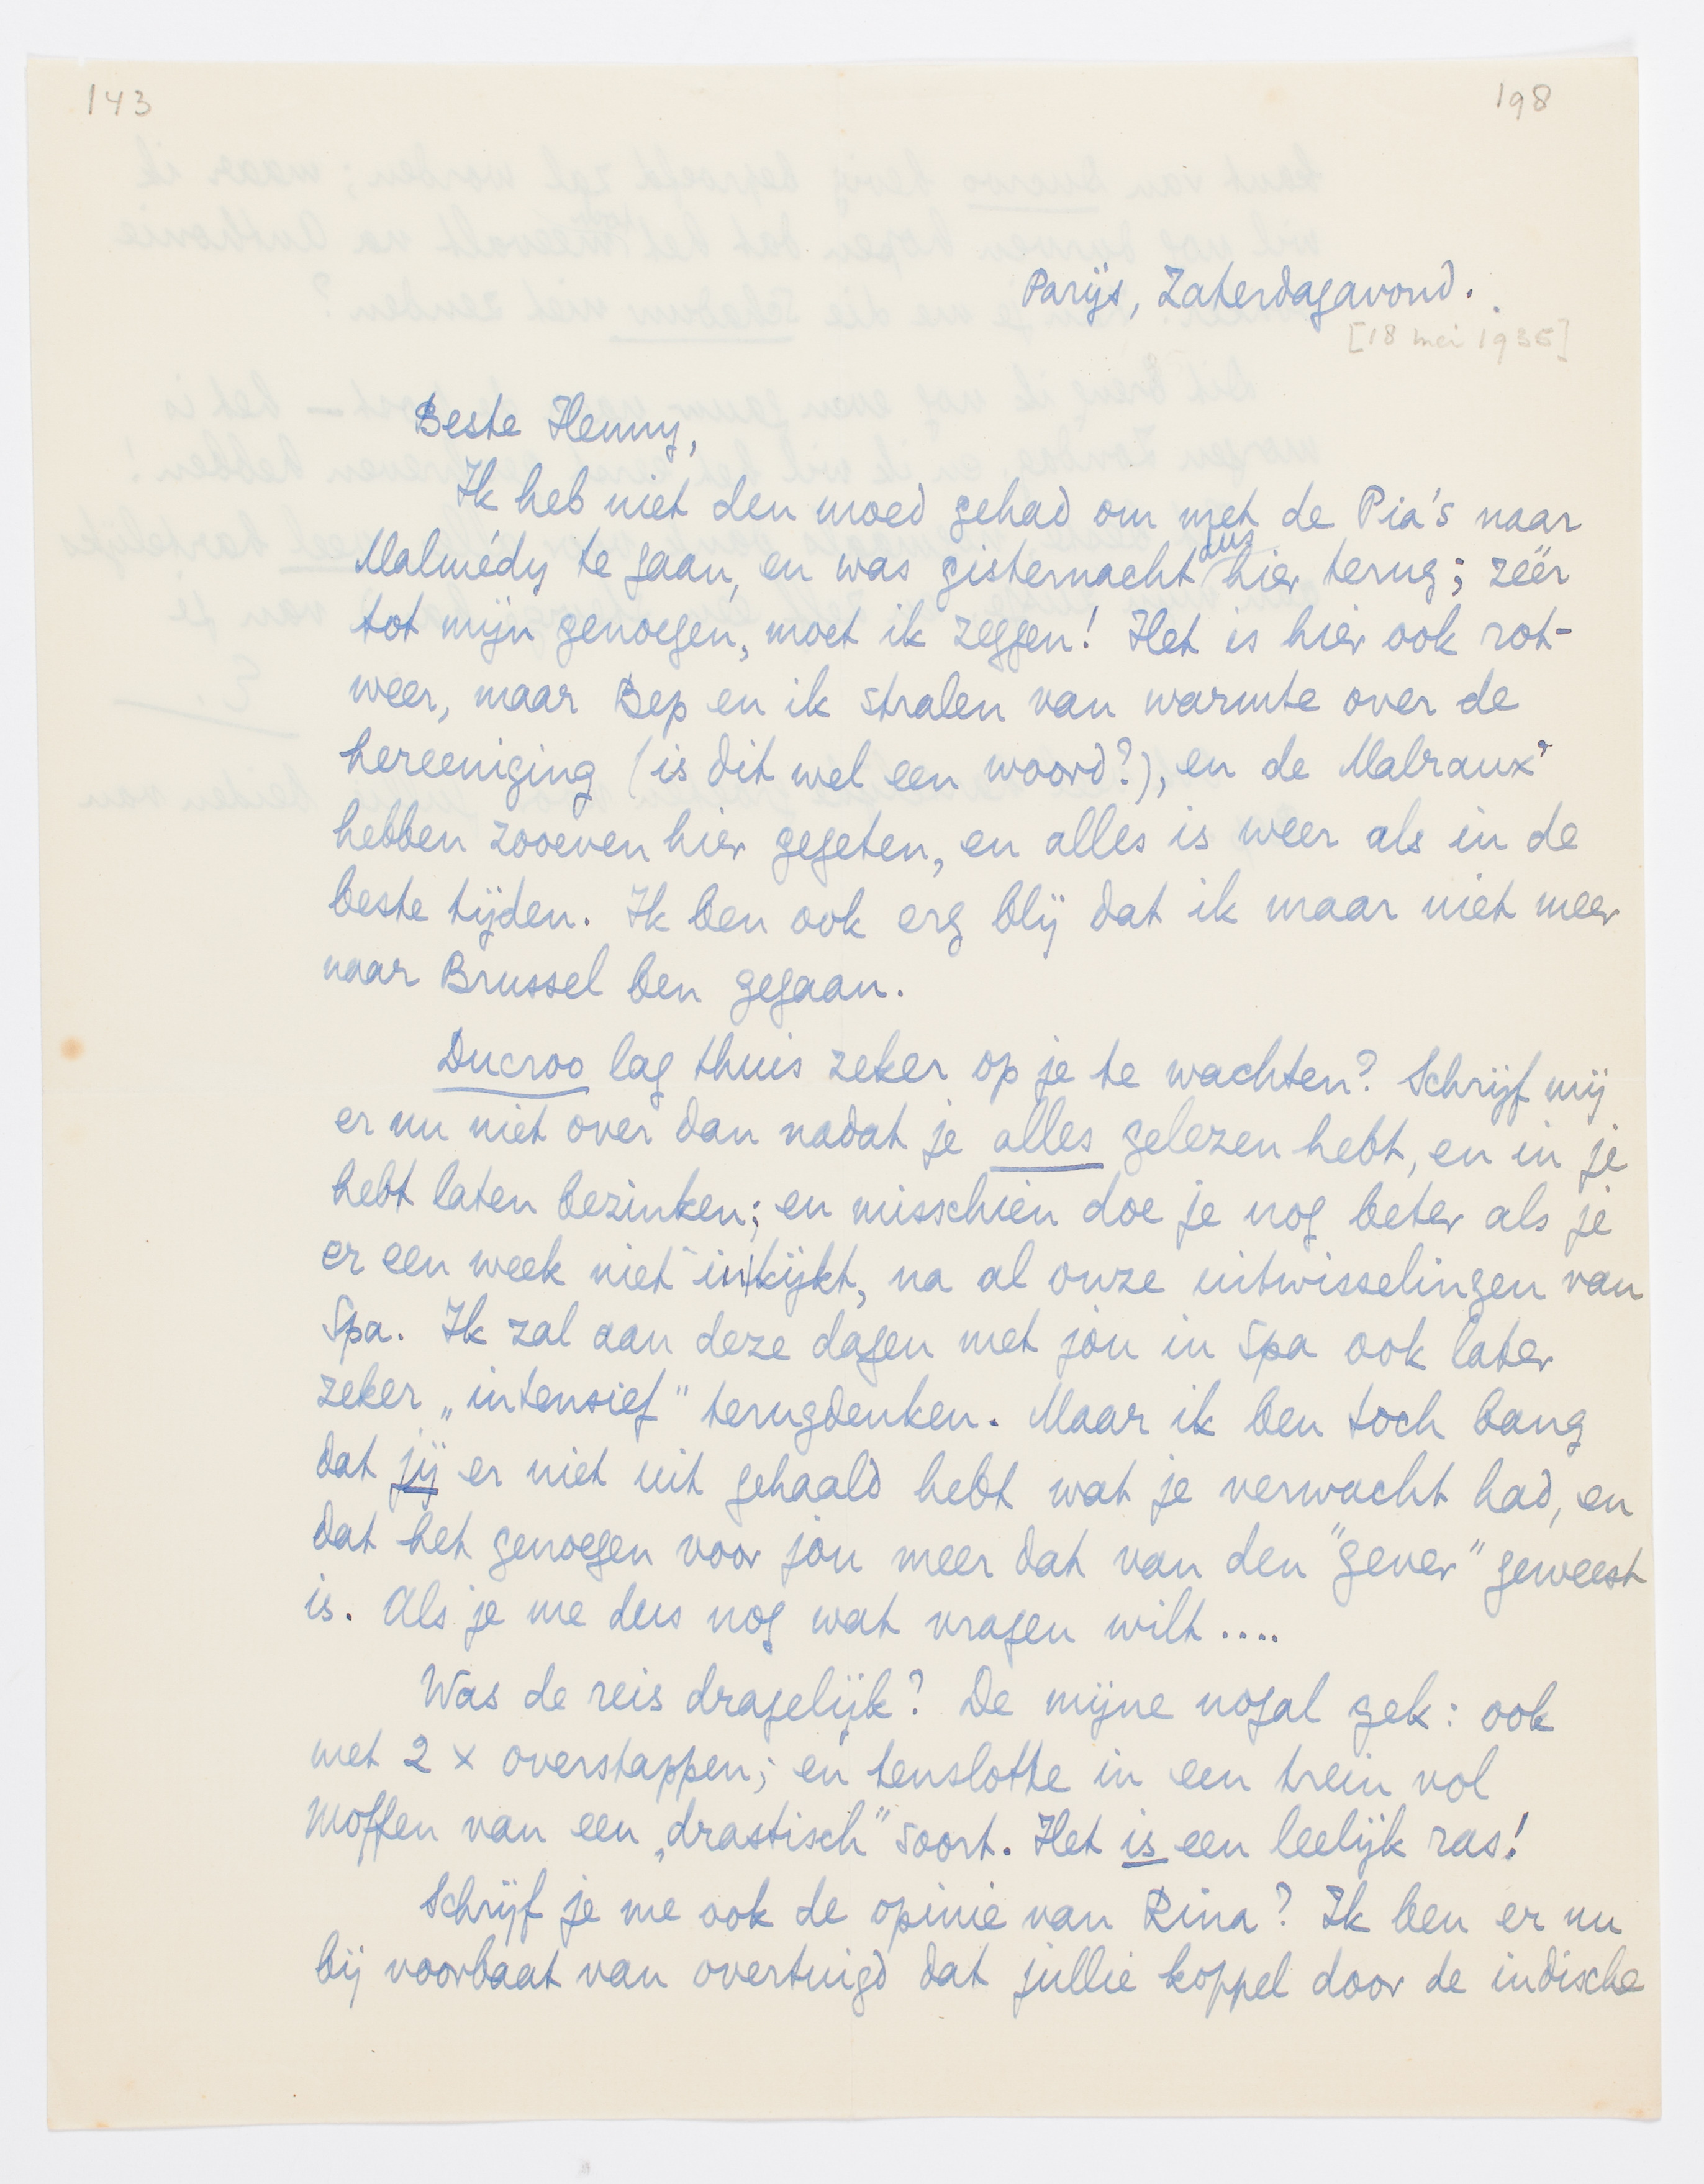 143
198
Parijs, Zaterdagavond.
[18 mei 1935]
Beste Henny,
Ik heb niet den moed gehad om met de Pia's naar
Malmédy te gaan, en was gisternacht dus hier terug; zéér
tot mijn genoegen, moet ik zeggen! Het is hier ook rot-
weer, maar Bep en ik stralen van warmte over de
hereeniging (is dit wel een woord?), en de Malraux'
hebben zooeven hier gegeten, en alles is weer als in de
beste tijden. Ik ben ook erg blij dat ik maar niet meer
naar Brussel ben gegaan.
Ducroo lag thuis zeker op je te wachten? Schrijf mij
er nu niet over dan nadat je alles gelezen hebt, en in je
hebt laten bezinken; en misschien doe je nog beter als je
er een week niet inkijkt, na al onze uitwisselingen van
Spa. Ik zal aan deze dagen met jou in Spa ook later
zeker „intensief" terugdenken. Maar ik ben toch bang
dat jij er niet uit gehaald hebt wat je verwacht had, en
dat het genoegen voor jou meer dat van den "gever" geweest
is. Als je me dus nog wat vragen wilt ....
Was de reis dragelijk? De mijne nogal gek: ook
met 2 x overstappen; en tenslotte in een trein vol
moffen van een „drastisch" soort. Het is een leelijk ras!
Schrijf je me ook de opinie van Rina? Ik ben er nu
bij voorbaat van overtuigd dat jullie koppel door de indische